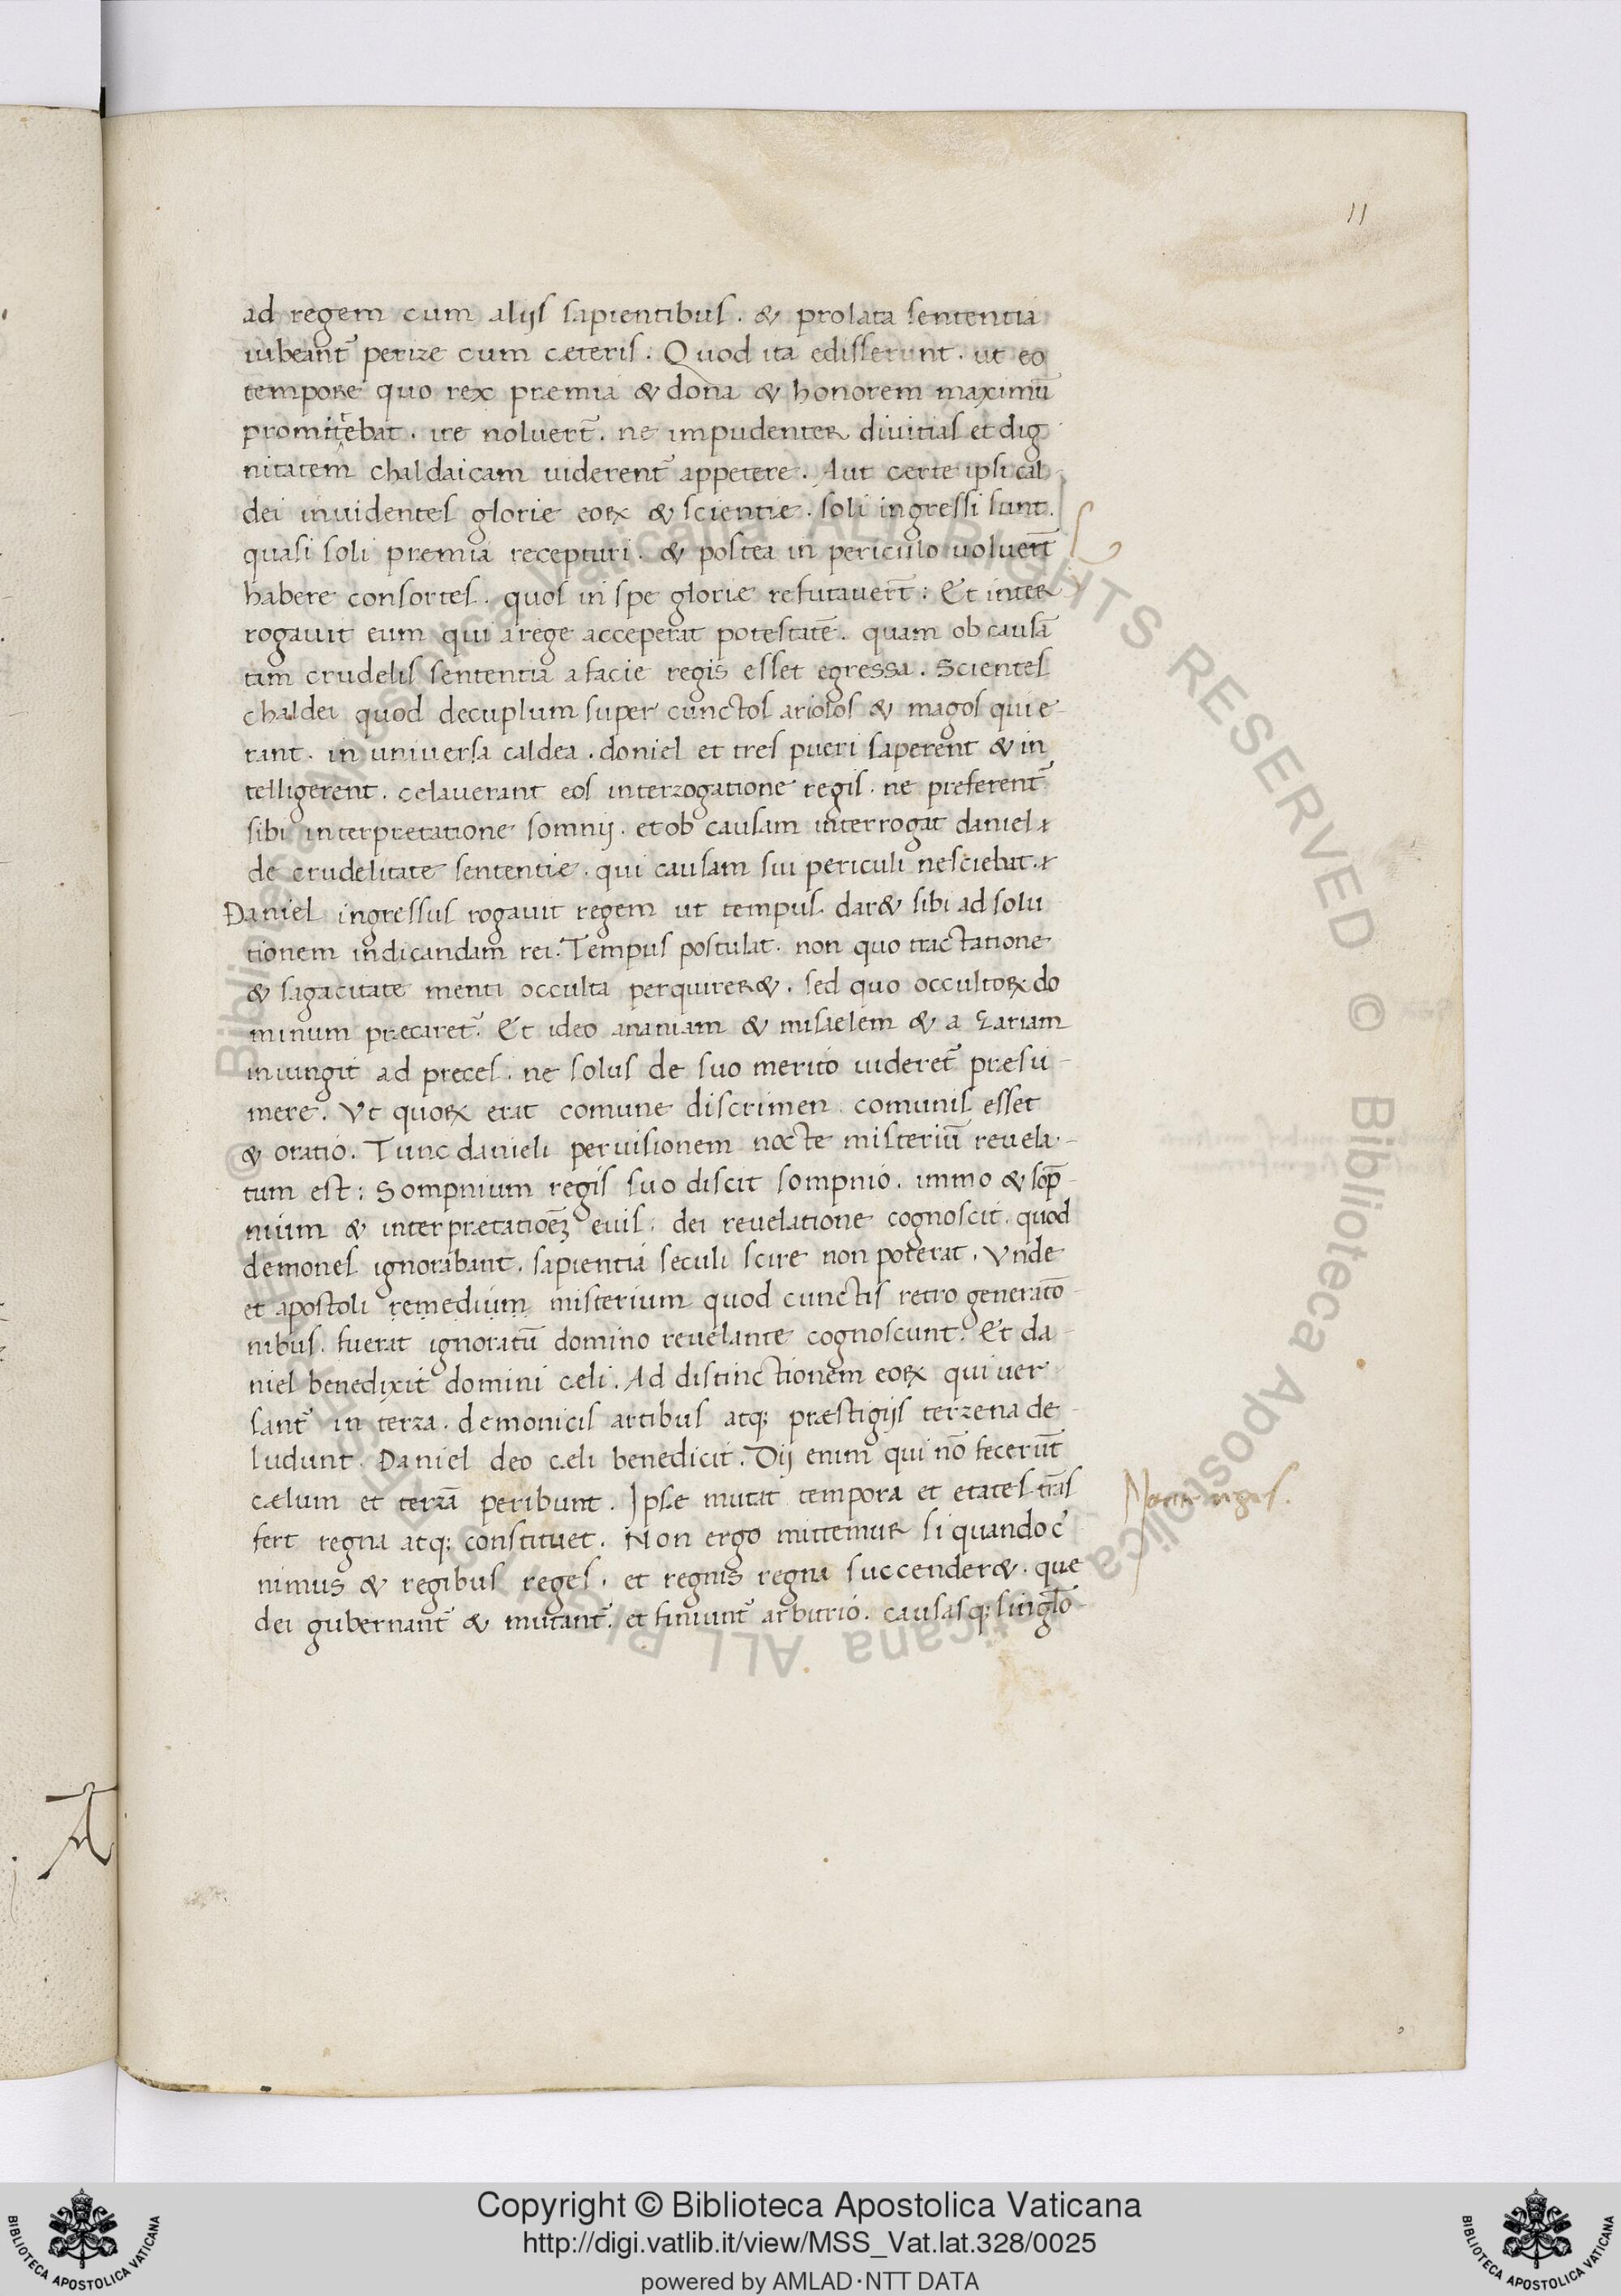 11
ad regem cum alijs sapientibus. & prolata sententia
iubeant̄ perire cum cæteris. Quod ita edisserunt. ut eo
tempore quo rex præmia & dona & honorem maximū
promittebat. ire noluert̄. ne impudenter divitias et dig
nitatem chaldaicam viderent̄ appetere. Aut certe ipsi cal
dei invidentes glorie eoꝝ & scientie. soli ingressi sunt.
quasi soli premia recepturi. & postea in periculo voluert̄
habere consortes. quos in spe gloriæ refutavert̄: Et inter
rogavit eum qui a rege acceperat potestatē. quam ob causā
tam crudelis sententia a facie regis esset egressa. Scientes
chaldei quod decuplum super cunctos ariolos & magos qui e-
rant. in universa caldea. doniel et tres pueri saperent & in
telligerent. celaverant eos interrogatione regis. ne preferent̄
sibi interpretatione somnij. et ob causam interrogat daniel
de crudelitate sententiæ. qui causam sui periculi nesciebat.
Daniel ingressus rogavit regem ut tempus dar& sibi ad solu
tionem indicandam rei. Tempus postulat. non quo tractatione
& sagacitate menti occulta perquirer&. sed quo occultoꝝ do
minum precaret̄. Et ideo ananiam & misaelem & azariam
iniungit ad preces. ne solus de suo merito videret̄ præsu-
mere. Ut quoꝝ erat comune discrimen comunis esset
& oratio. Tunc danieli per visionem nocte misteriū revela-
tum est: Sompnium regis suo discit sompnio. immo & sop̄-
nium & interpretatioēꝫ euis. dei revelatione cognoscit. quod
demones ignorabant. sapientia seculi scire non poterat. Unde
et apostoli remedium misterium quod cunctis retro generatō-
nibus. fuerat ignoratū domino revelante cognoscunt. Et da-
niel benedixit domini celi. Ad distinctionem eoꝝ qui ver
sant̄ in terra. demonicis artibus atq; præstigijs terrena de-
ludunt. Daniel deo celi benedicit. Dij enim qui nō fecerūt
cælum et terrā peribunt. Ipse mutat tempora et etates trās
fert regna atq; constituet. Non ergo mittemur si quando c̄
nimus & regibus reges. et regnis regna succender&. que
dei gubernant̄ & mutant̄. et finiunt̄ arbitrio. causasq; singlō-
Copyright © Biblioteca Apostolica Vaticana
http://digi.vatlib.it/view/MSS_Vat.lat.328/0025
powered by AMLAD·NTT DATA
BIBLIOTECA APOSTOLICA VATICANA
BIBLIOTECA APOSTOLICA VATICANA